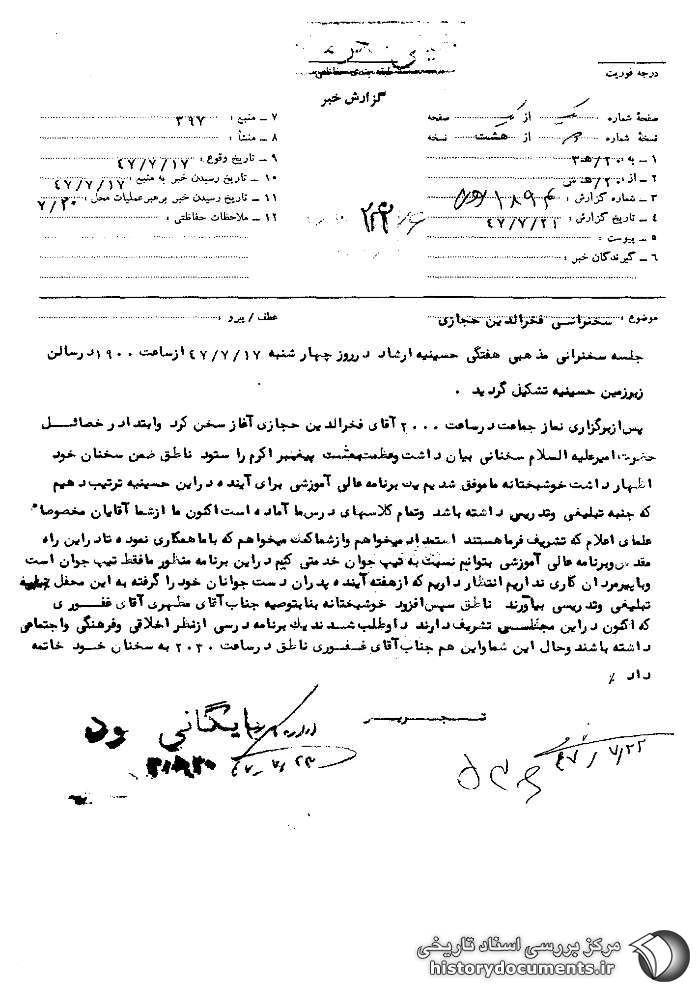 طبقه بندی حفاظتی
درجه فوریت
گزارش خبر
صفحهٔ شماره یک از یک صفحه
نسخهٔ شماره از هشت نسخه
۱ ـ به : ۲۰/ه‍ ۳
۲ ـ از : ۲۰/ه‍
۳ ـ شماره گزارش :
۴ ـ تاریخ گزارش : ۴۷/۷/۲۱
۵ ـ پیوست :
۶ ـ گیرندگان خبر :
۷ ـ منبع : ۳۹۷
۸ ـ منشأ :
۹ ـ تاریخ وقوع : ۴۷/۷/۱۷
۱۰ ـ تاریخ رسیدن خبر به منبع : ۴۷/۷/۱۷
۱۱ ـ تاریخ رسیدن خبر برهبر عملیات محل : ۷/۲۰
۱۲ ـ ملاحظات حفاظتی :
موضوع : سخنرانی فخرالدین حجازی
عطف / پیرو :
جلسه سخنرانی مذهبی هفتگی حسینیه ارشاد در روز چهارشنبه ۴۷/۷/۱۷ از ساعت ۱۹۰۰ در سالن
زیرزمین حسینیه تشکیل گردید .
پس از برگزاری نماز جماعت در ساعت ۲۰۰۰ آقای فخرالدین حجازی آغاز سخن کرد و ابتدا در خصائل
حضرت امیر علیه السلام سخنانی بیان داشت و عظمت بعثت پیغمبر اکرم را ستود ناطق ضمن سخنان خود
اظهار داشت خوشبختانه ما موفق شدیم یک برنامه عالی آموزشی برای آینده در این حسینیه ترتیب دهیم
که جنبه تبلیغی و تدریس داشته باشد و تمام کلاسهای درس ما آماده است اکنون ما از شما آقایان مخصوصا"
علمای اعلام که تشریف فرما هستند استمداد میخواهم و از شما کمک میخواهم که با ما همکاری نموده تا در این راه
مقدس و برنامه عالی آموزشی بتوانیم نسبت به تیپ جوان خدمتی کنیم در این برنامه منظور ما فقط تیپ جوان است
و با پیرمردان کاری نداریم انتظار داریم که از هفته آینده پدران دست جوانان خود را گرفته به این محفل
تبلیغی و تدریسی بیاورند ناطق سپس افزود خوشبختانه بنا بتوصیه جناب آقای مطهری آقای غفوری
که اکنون در این مجلس تشریف دارند داوطلب شدند یک برنامه درسی از نظر اخلاقی و فرهنگی و اجتماعی
داشته باشند و حال این شما و این هم جناب آقای غفوری ناطق در ساعت ۲۰۳۰ به سخنان خود خاتمه
داد /
بایگانی
۴۷/۷/۲۳
۴۷/۷/۲۲
مرکز بررسی اسناد تاریخی
historydocuments.ir